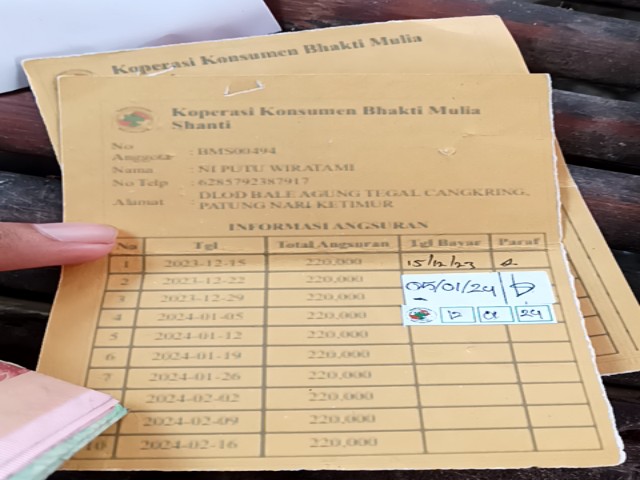 Koperasi Konsumen Bhakti Mulia
Koperasi Konsumen Bhakti Mulia
Shanti
No
Anggota : BMS00494
Nama : NI PUTU WIRATAMI
No Telp : 6285792387917
Alamat : DLOD BALE AGUNG TEGAL CANGKRING,
PATUNG NARI KETIMUR
INFORMASI ANGSURAN
No Tgl Total Angsuran Tgl Bayar Paraf
1 2023-12-15 220,000 15/12/23
2 2023-12-22 220,000
3 2023-12-29 220,000 05/01/24
4 2024-01-05 220,000 12 01 24
5 2024-01-12 220,000
6 2024-01-19 220,000
7 2024-01-26 220,000
2024-02-02 220,000
2024-02-09 220,000
10 2024-02-16 220,000